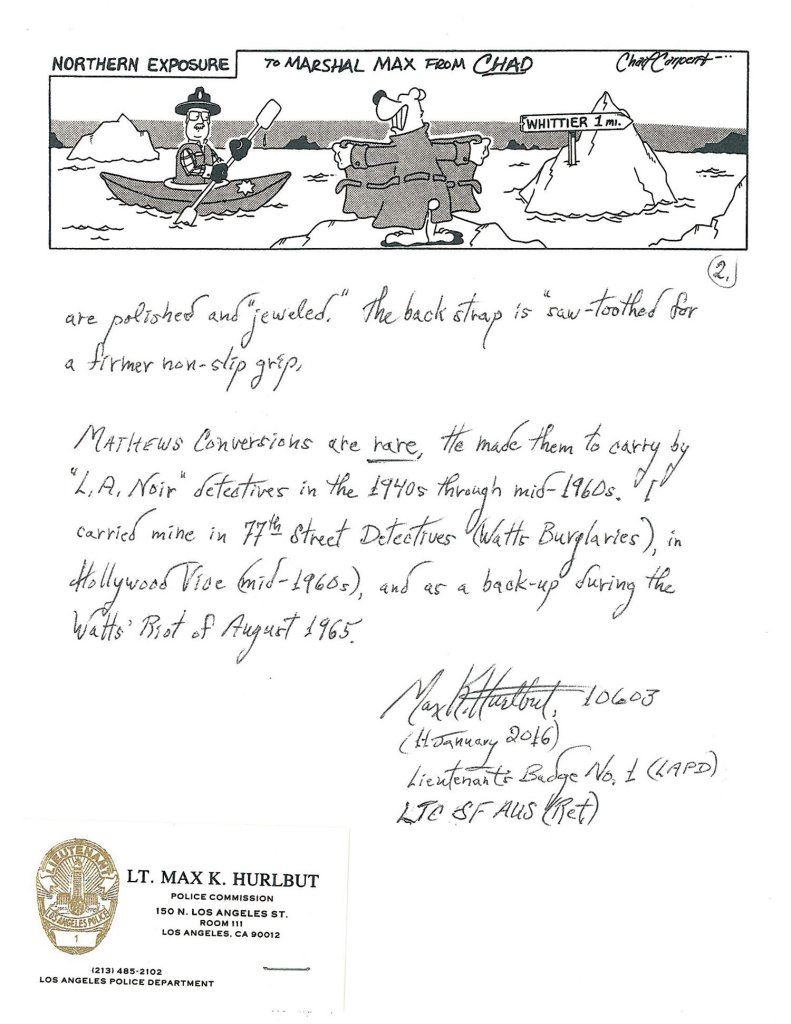 NORTHERN EXPOSURE
TO MARSHAL MAX FROM CHAD
WHITTIER 1 MI.
2.
are polished and "jeweled." The back strap is "saw-toothed for
a firmer non-slip grip.
MATHEWS Conversions are rare. He made them to carry by
"L.A. Noir" detectives in the 1940s through mid-1960s. I
carried mine in 77th Street Detectives (Watts Burglaries), in
Hollywood Vice (mid-1960s), and as a back-up during the
Watts' Riot of August 1965.
Max K. Hurlbut, 10603
(11 January 2016)
Lieutenant's Badge No. 1 (LAPD)
LTC SF AUS (Ret)
LIEUTENANT
LOS ANGELES POLICE
1
LT. MAX K. HURLBUT
POLICE COMMISSION
150 N. LOS ANGELES ST.
ROOM 111
LOS ANGELES, CA 90012
(213) 485-2102
LOS ANGELES POLICE DEPARTMENT